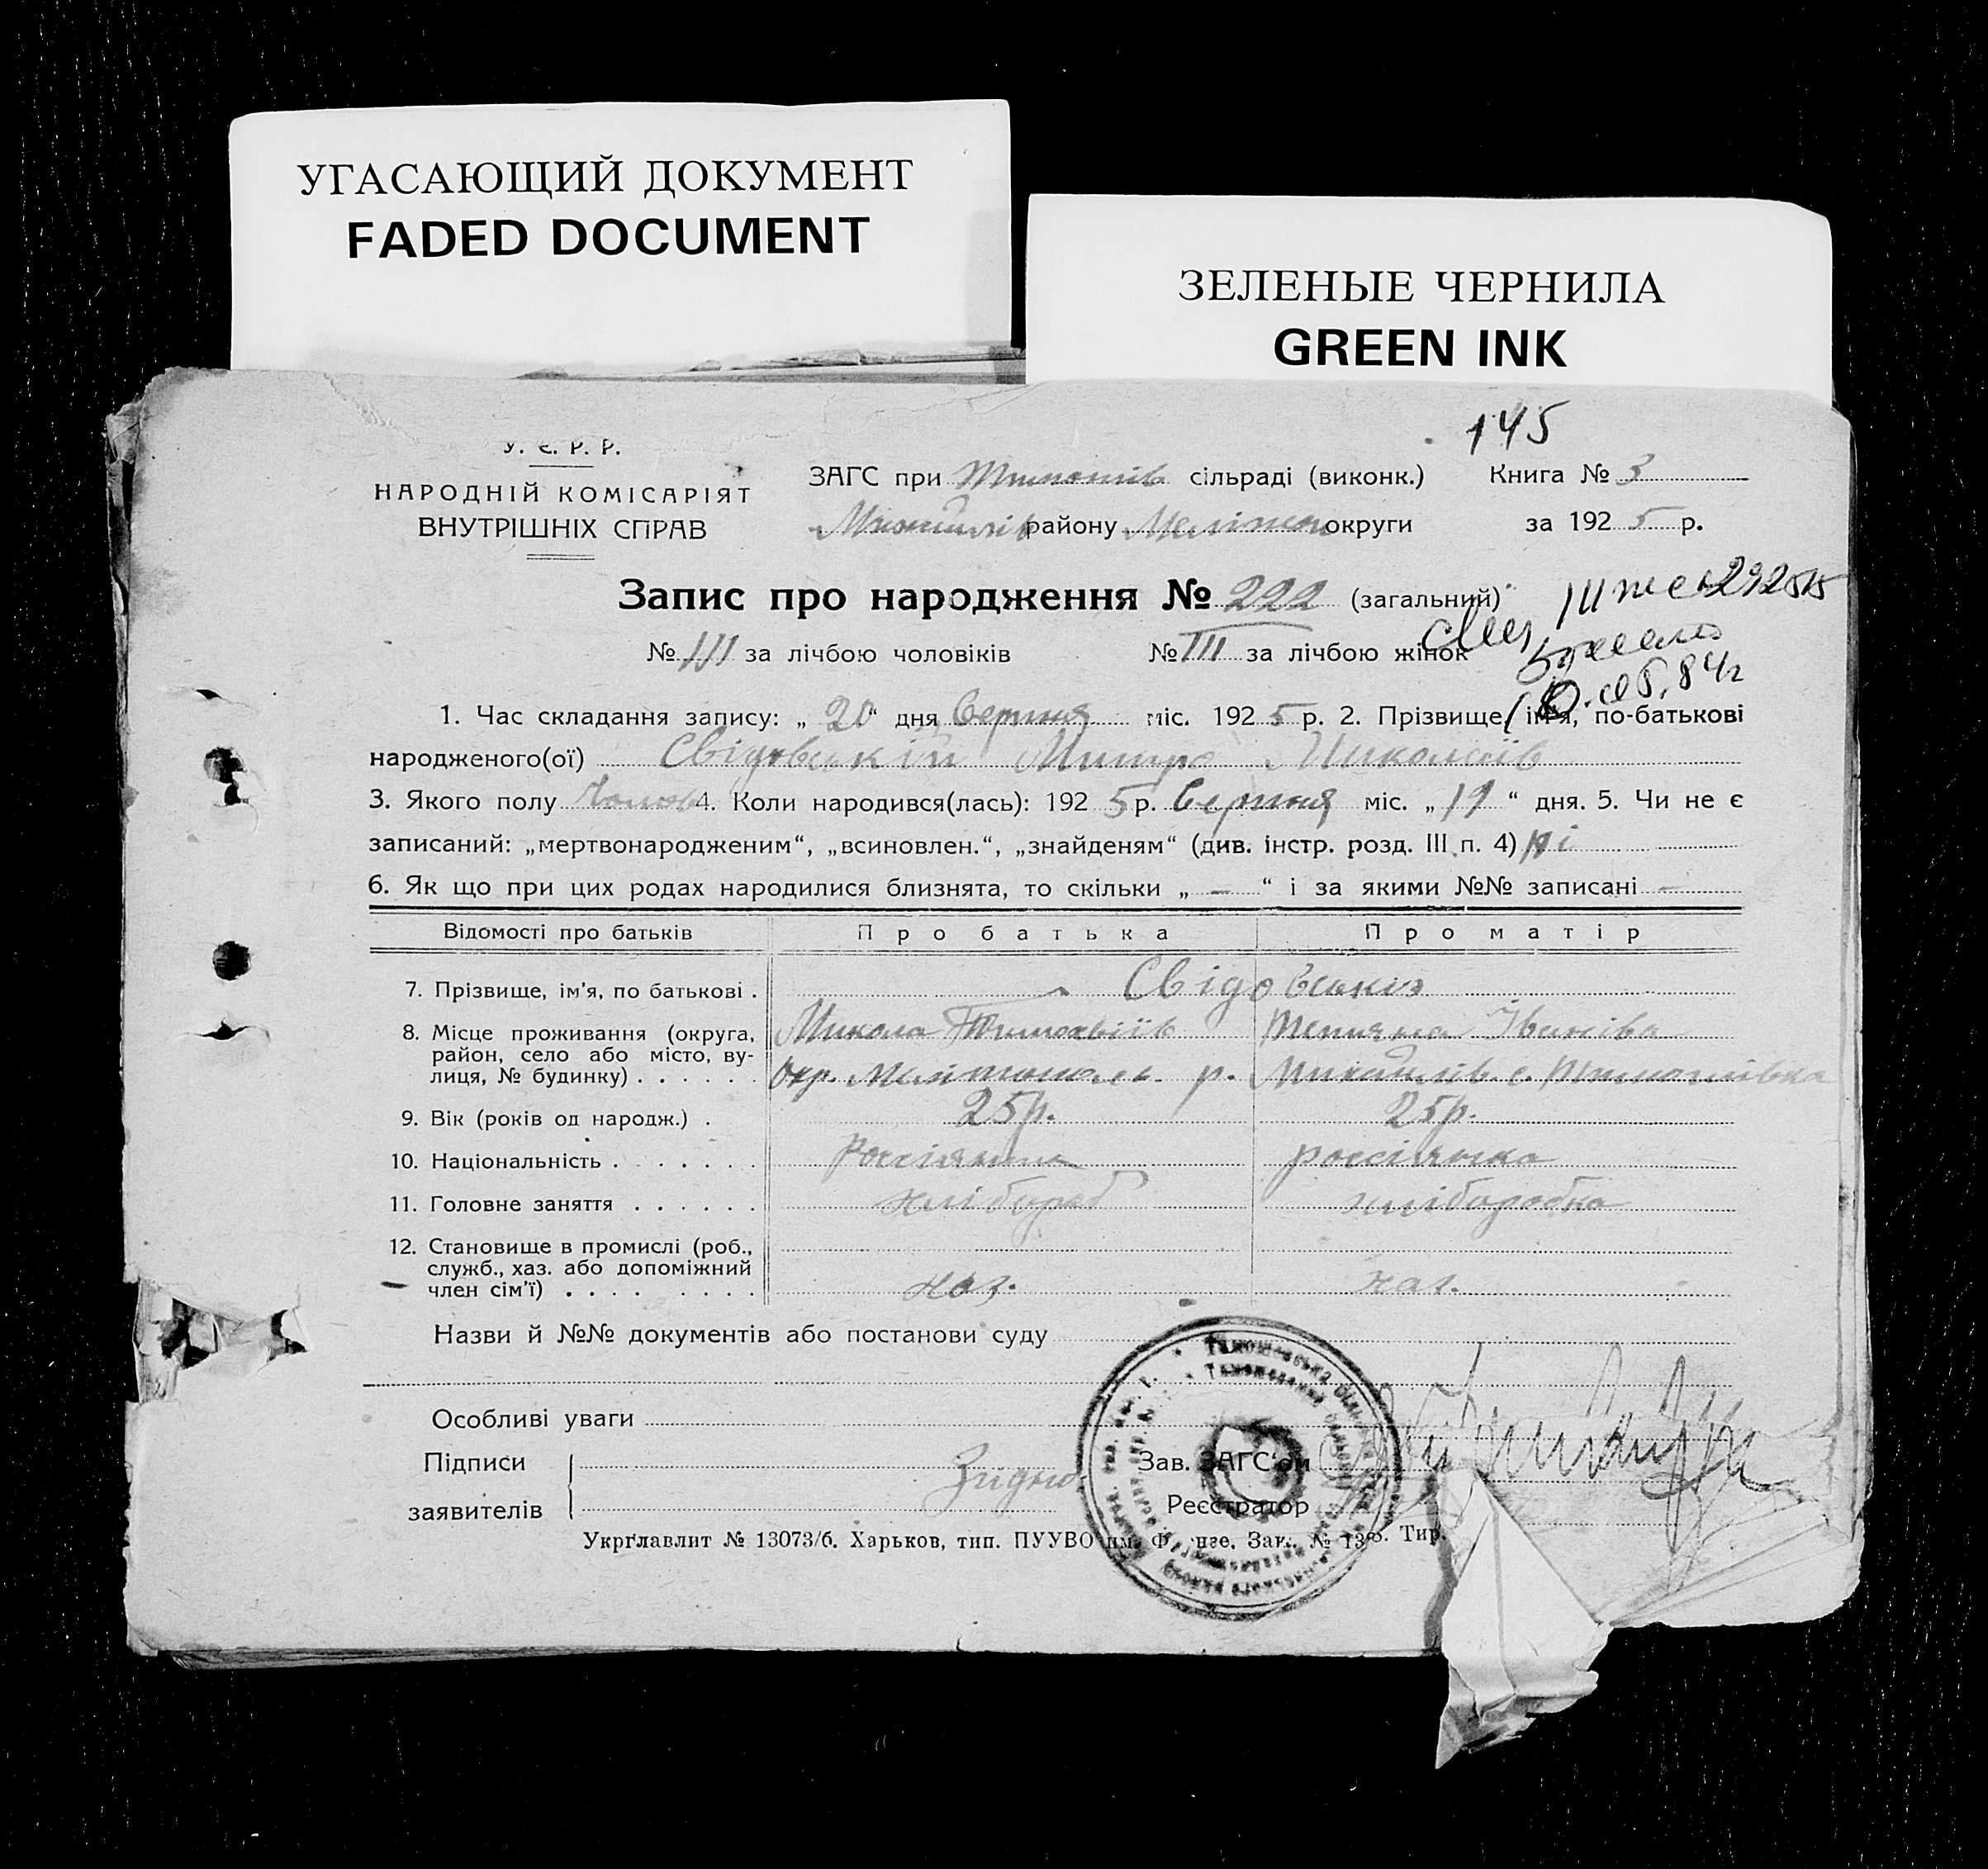 УГАСАЮЩИЙ ДОКУМЕНТ
FADED DOCUMENT
ЗЕЛЕНЫЕ ЧЕРНИЛА
GREEN INK
145
У. С. Р. Р.
НАРОДНІЙ КОМІСАРІЯТ
ВНУТРІШНІХ СПРАВ
ЗАГС при Тимошів сільраді (виконк.) Книга № 3
Михайлів району Меліт округи за 1925 р.
Запис про народження № 222 (загальний)
№ 111 за лічбою чоловіків № III за лічбою жінок
1. Час складання запису: „ 20 “ дня Серпня міс. 1925 р. 2. Прізвище, ім'я, по-батькові
народженого(ої) Свідовський Митро Миколаїв
3. Якого полу Чолов 4. Коли народився(лась): 1925 р. Серпня міс. „ 19 “ дня. 5. Чи не є
записаний: „мертвонародженим“, „всиновлен.“, „знайденям“ (див. інстр. розд. III п. 4) ні
6. Як що при цих родах народилися близнята, то скільки „ — “ і за якими №№ записані —
Відомості про батьків Про батька Про матір
7. Прізвище, ім'я, по батькові . Свідовські
8. Місце проживання (округа, Микола Тимохвіїв Іванівна
район, село або місто, ву-
лиця, № будинку) . . . . . . Окр. Мелітополь р. Михайлів. с. Тимошівка
9. Вік (років од народж.) . 25р. 25р.
10. Національність . . . . . . . россіянин россіянка
11. Головне заняття . . . . . . хлібороб хліборобка
12. Становище в промислі (роб.,
служб., хаз. або допоміжний
член сім'ї) . . . . . . . . хаз. хаз.
Назви й №№ документів або постанови суду
Особливі уваги
Підписи Зав. ЗАГС'ом
заявителів Реєстратор
Укрглавлит № 13073/б. Харьков, тип. ПУУВО им. Фрунзе. Зак. № Тир.